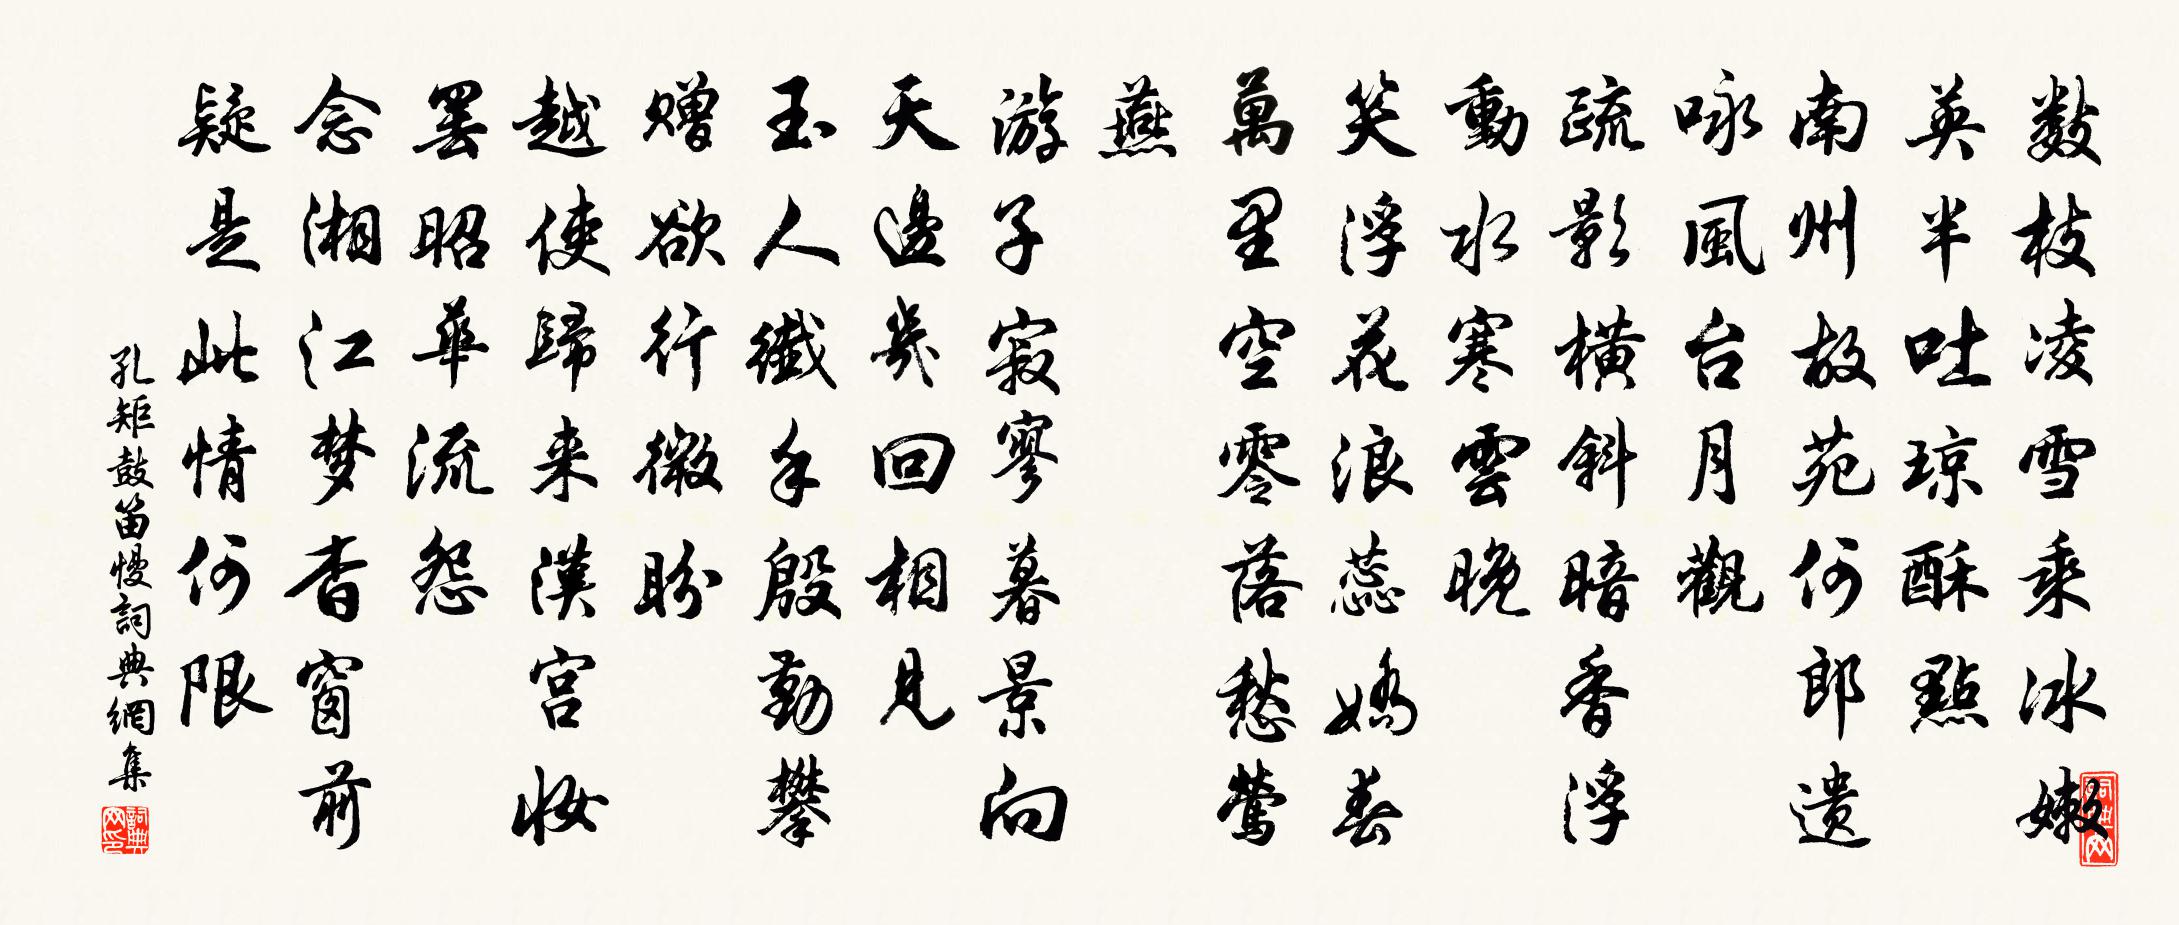 數枝凌雪乘冰嫩
英半吐琼酥點
南州故苑何郎遗
咏風台月觀
疏影橫斜暗香浮
動水寒雲晚
笑浮花浪蕊嬌春
萬里空零落愁鶯
燕
游子寂寥暮景向
天邊幾回相見
玉人纖手殷勤攀
赠欲行微盼
越使歸来漢宫妝
罢昭華流怨
念湘江梦杳窗前
疑是此情何限
孔矩鼓笛慢詞典網集
詞典网印
词典网